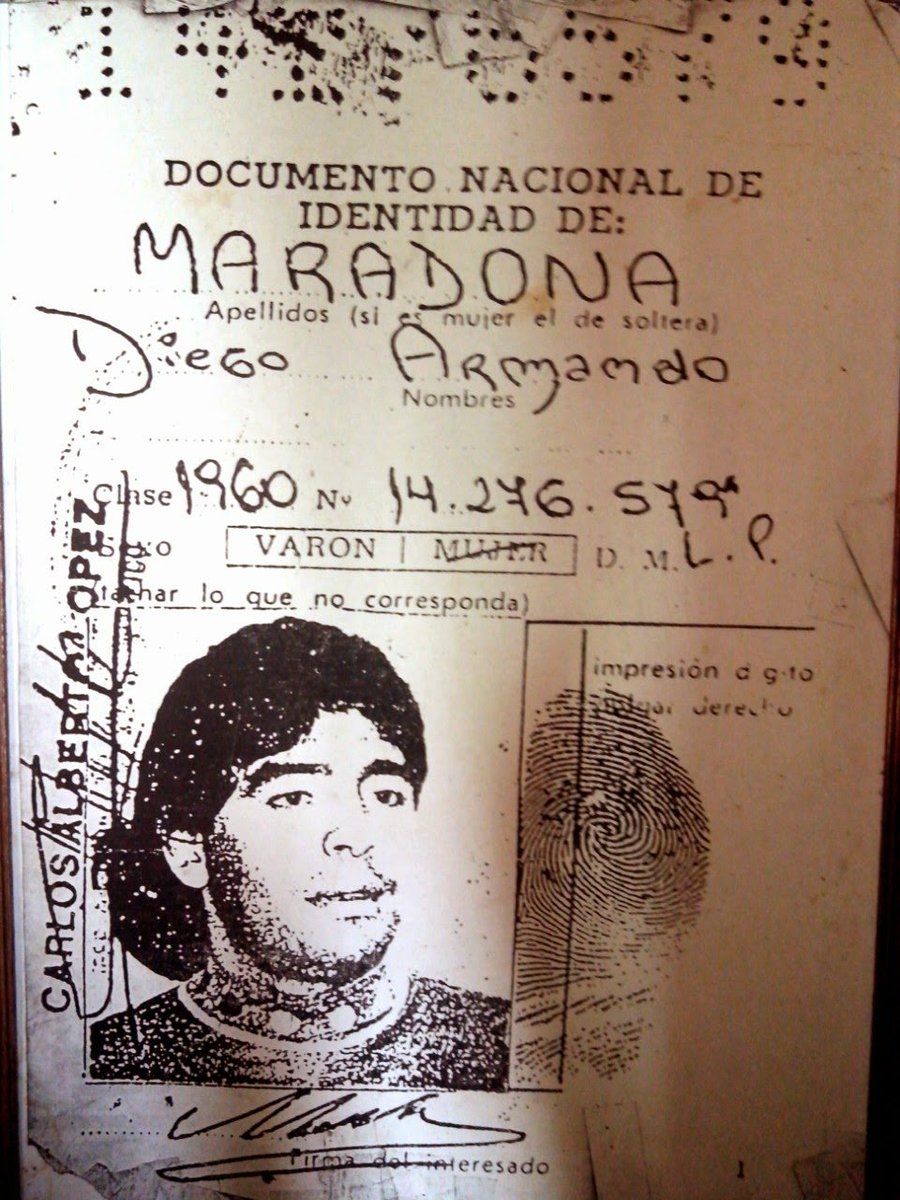 DOCUMENTO NACIONAL DE
IDENTIDAD DE:
MARADONA
Apellidos (si es mujer el de soltera)
Diego Armando
Nombres
Clase 1960 Nº 14.276.579
Sexo VARON | MUJER D. M. L. P.
(tachar lo que no corresponda)
impresión dígito
pulgar derecho
CARLOS ALBERTO LOPEZ
Firma del interesado
1